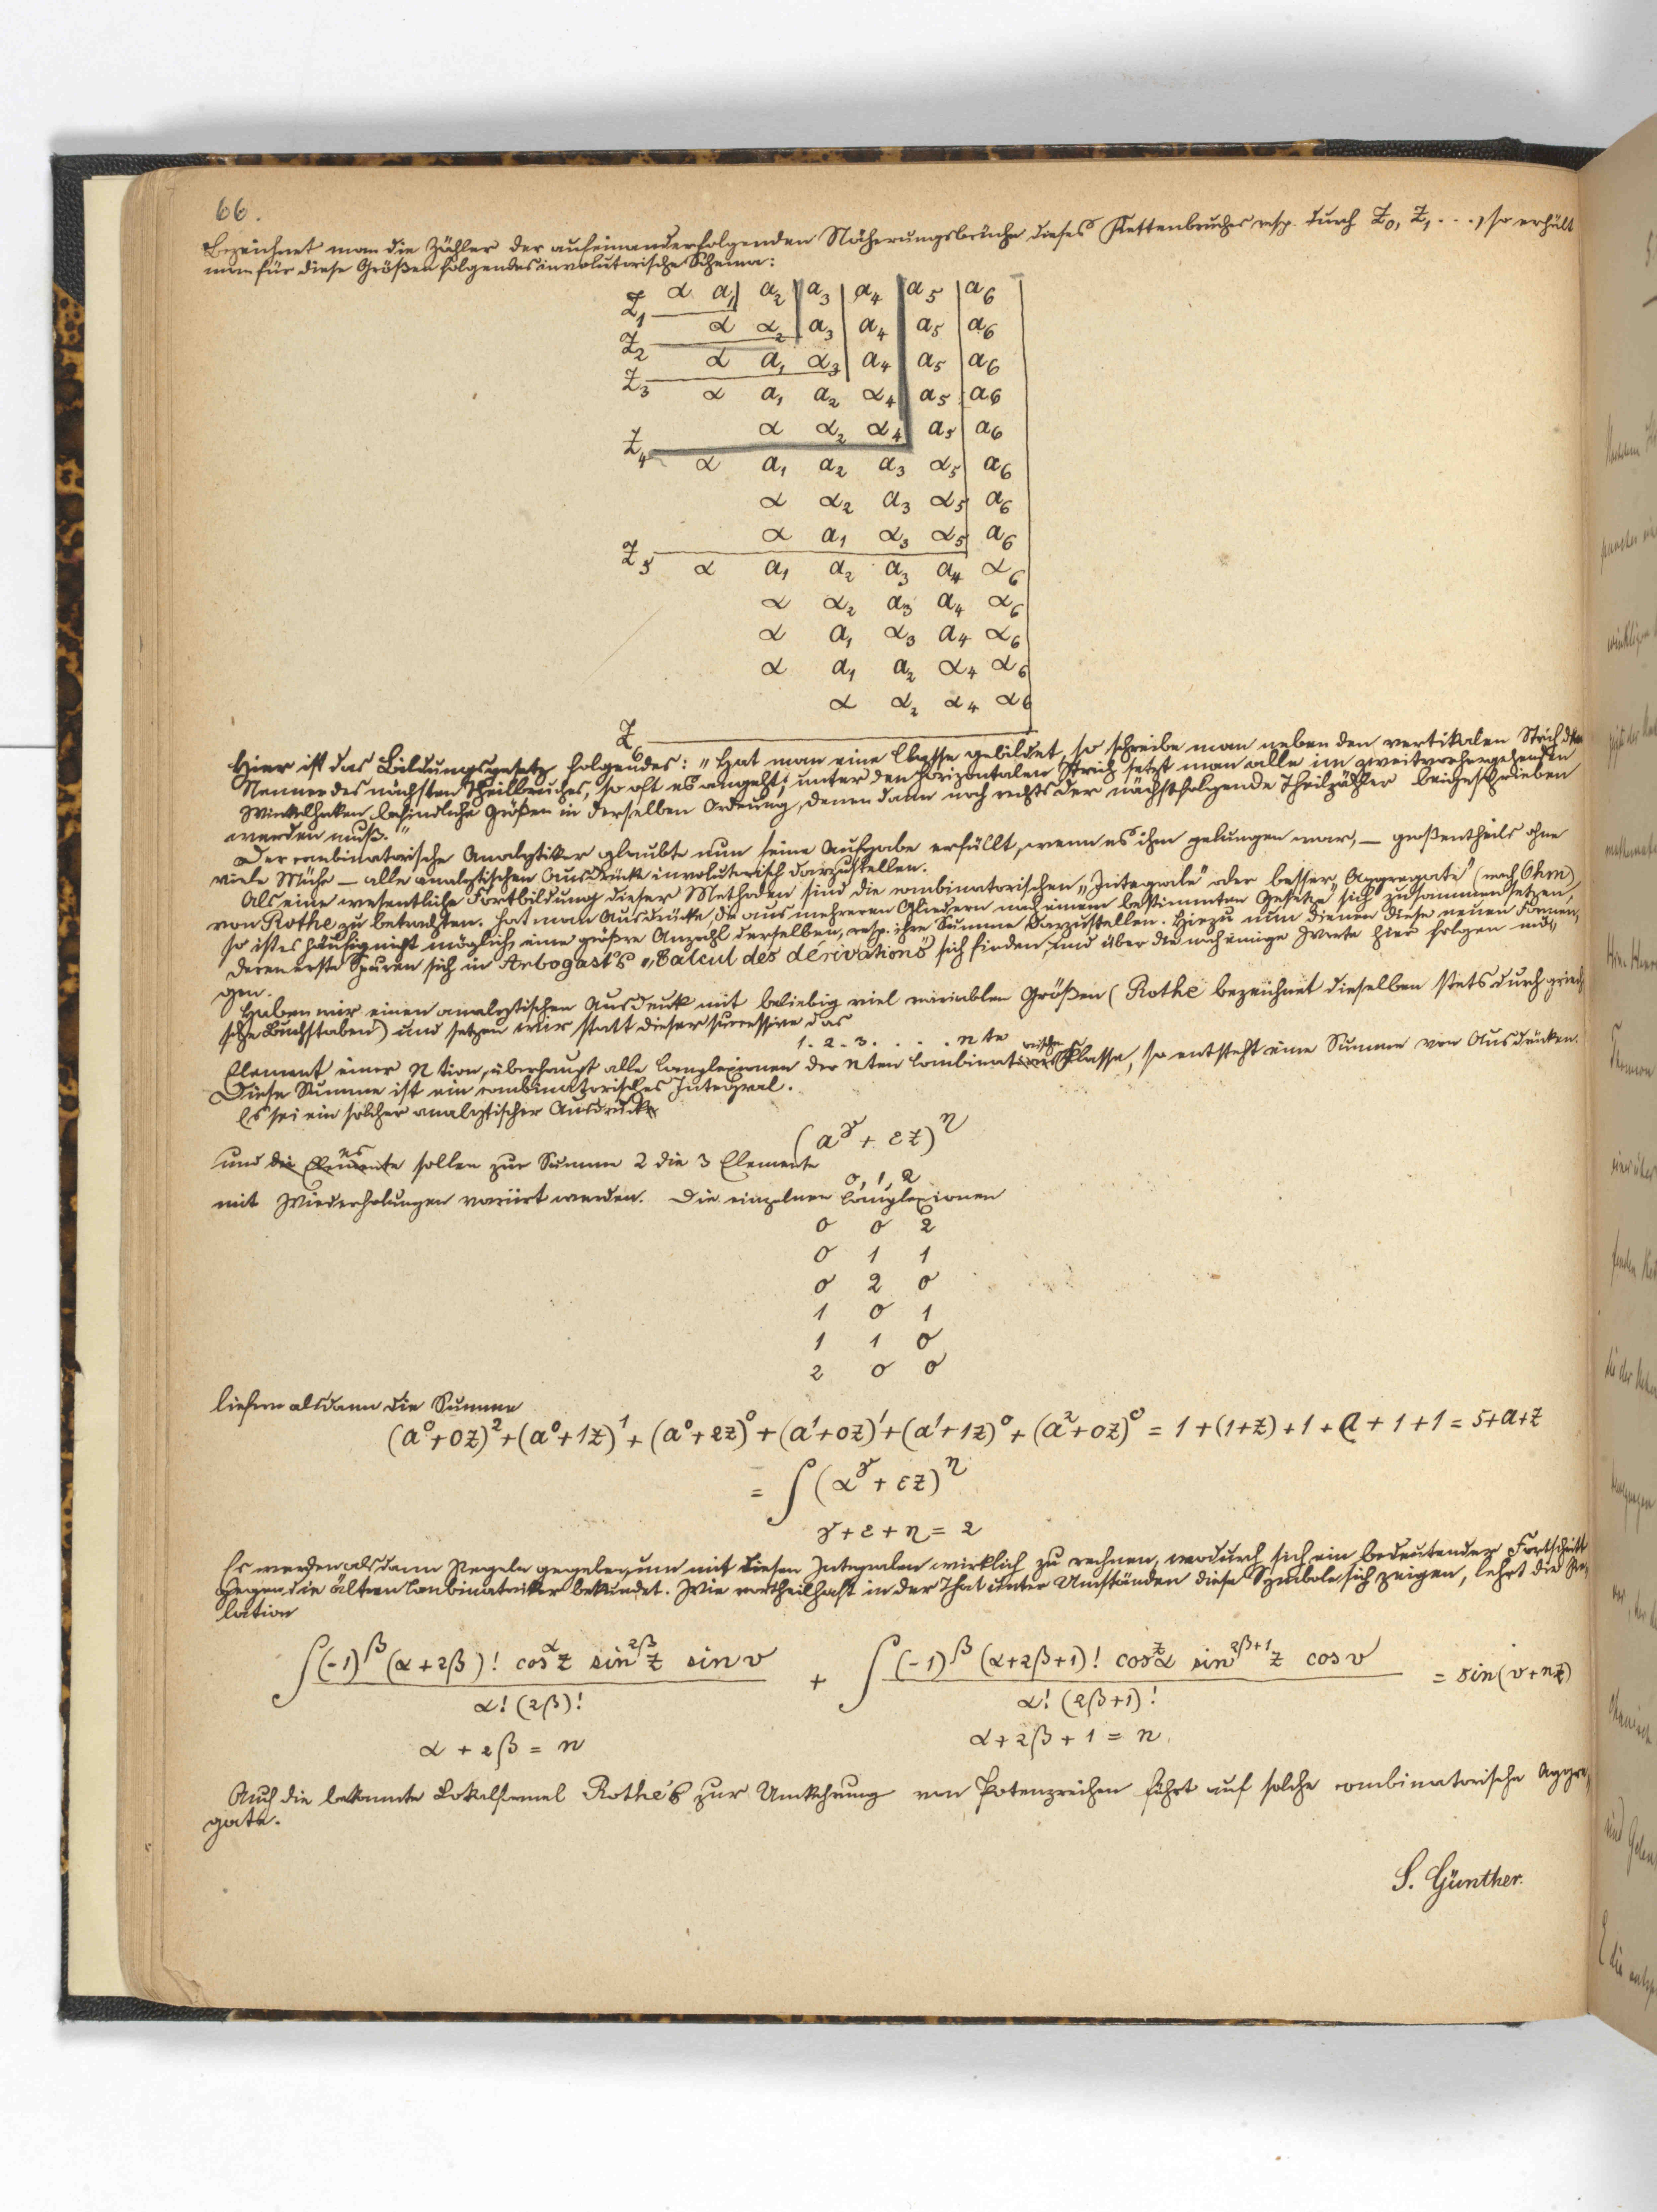 66.
Bezeichnet man die Zähler der aufeinanderfolgenden Näherungsbrüche dieses Kettenbruches resp. durch Z₀, Z₁ . . ., so erhält
man für diese Größen folgendes involutorische Schema:
Z₁ α a₁ a₂ a₃ a₄ a₅ a₆
Z₂ α α₂ a₃ a₄ a₅ a₆
Z₃ α a₁ α₃ a₄ a₅ a₆
α a₁ a₂ α₄ a₅ a₆
Z₄ α α₂ α₄ a₅ a₆
α a₁ a₂ a₃ α₅ a₆
α α₂ a₃ α₅ a₆
α a₁ α₃ α₅ a₆
Z₅ α a₁ a₂ a₃ a₄ α₆
α α₂ a₃ a₄ α₆
α a₁ α₃ a₄ α₆
α a₁ a₂ α₄ α₆
α α₂ α₄ α₆
Z₆
Hier ist das Bildungsgesetz folgendes: „Hat man eine Classe gebildet, so schreibe man neben den vertikalen Strich den
Nenner des nächsten Theilbruches, so oft es angeht; unter den horizontalen Strich setzt man alle im zweitvorhergehenden
Winkelhaken befindliche Größen in derselben Ordnung, denen dann noch rechts der nächstfolgende Theilzähler beigeschrieben
werden muß."
Der combinatorische Analytiker glaubte nun seine Aufgabe erfüllt, wenn es ihm gelungen war, — großentheils ohne
viele Mühe — alle analytischen Ausdrücke involutorisch darzustellen.
Als eine wesentliche Fortbildung dieser Methoden sind die combinatorischen „Integrale" oder besser „Aggregate" (nach Ohm)
von Rothe zu betrachten. Hat man Ausdrücke, die aus mehreren Gliedern nach einem bestimmten Gesetze sich zusammensetzen,
so ist es häufig nicht möglich eine größere Anzahl derselben, resp. ihre Summe darzustellen. Hiezu nun dienen diese neuen Formen,
deren erste Spuren sich in Arbogast's „Calcul des dérivations" sich finden, und über die noch einige Worte hier folgen mö„
gen.
Haben wir einen analytischen Ausdruck mit beliebig viel variablen Größen (Rothe bezeichnet dieselben stets durch griech
sche Buchstaben) und setzen wir statt dieser successive das
1. 2. 3. . . . . nte
Element einer n tion, überhaupt alle Complexionen der nten combinatorische Classe, so entsteht eine Summe von Ausdrücken.
Diese Summe ist ein combinatorisches Integral.
Es sei ein solcher analytischer Ausdruck
(a^γ + εz)^η
und es sollen zur Summe 2 die 3 Elemente
0, 1, 2
mit Wiederholungen variirt werden. Die einzelnen Complexionen
0 0 2
0 1 1
0 2 0
1 0 1
1 1 0
2 0 0
liefern alsdann die Summe
(a⁰+0z)²+(a⁰+1z)¹+(a⁰+2z)⁰+(a¹+0z)¹+(a¹+1z)⁰+(a²+0z)⁰ = 1+(1+z)+1+a+1+1 = 5+a+z
= ∫(α^γ + εz)^η
γ+ε+η = 2
Es werden alsdann Regeln gegeben, um mit diesen Integralen wirklich zu rechnen, wodurch sich ein bedeutender Fortschritt
gegen die ältern Combinatoriker bekundet. Wie vortheilhaft in der That unter Umständen diese Symbole sich zeigen, lehrt die Re„
lation
∫ (-1)^β (α+2β)! cos^α z sin^2β z sin v / α! (2β)! + ∫ (-1)^β (α+2β+1)! cos^z α sin^2β+1 z cos v / α! (2β+1)! = sin(v+nz)
α + 2β = n α+2β+1 = n.
Auch die bekannte Lokalformel Rothe's zur Umkehrung von Potenzreihen führt auf solche combinatorische Aggre„
gate.
S. Günther.